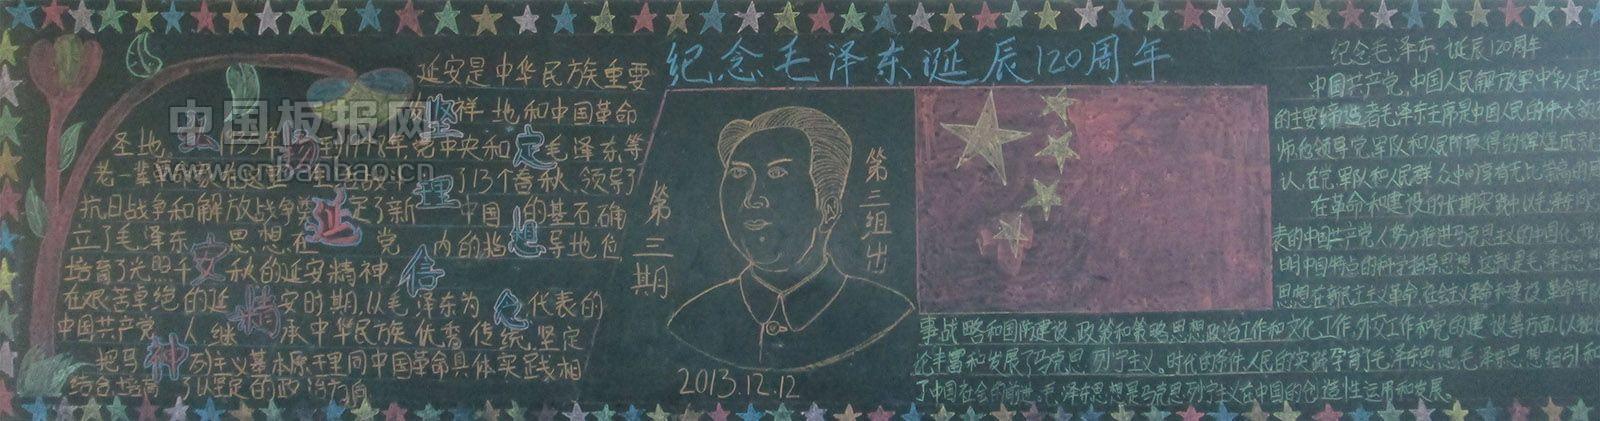 纪念毛泽东诞辰120周年
延安是中华民族重要
祥地和中国革命
圣地
党中央和毛泽东等
老一辈
了13个春秋,领导了
抗日战争和解放战争
定了新中国的基石,确
立了毛泽东思想在党内的指导地位,
培育了光照千秋的延安精神
在艰苦卓绝的延安时期,从毛泽东为代表的
中国共产党人继承中华民族优秀传统,坚定
把马列主义基本原理同中国革命具体实践相
结合培育了以坚定的政治方向
弘扬延安精神
坚定理想信念
第三期
第三组出
2013.12.12
纪念毛泽东诞辰120周年
中国共产党,中国人民解放军中华人民共
的主要缔造者毛泽东主席是中国人民的伟大领
师他领导党军队和人民所取得的辉煌成就
认,在党军队和人民群众中享有无比崇高的
在革命和建设的长期实践中以毛泽东同
表的中国共产党人努力推进马克思主义的中国化
明中国特点的科学指导思想,这就是毛泽东思
思想在新民主主义革命,社会主义革命和建设,革命军队
事战略和国防建设,政策和策略,思想政治工作和文化工作,外交工作和党的建设等方面,以独
论丰富和发展了马克思列宁主义。时代的条件,人民的实践孕育了毛泽东思想,毛泽东思想指引和
了中国社会的前进。毛泽东思想是马克思列宁主义在中国的创造性运用和发展。
中国板报网
www.cnbanbao.cn